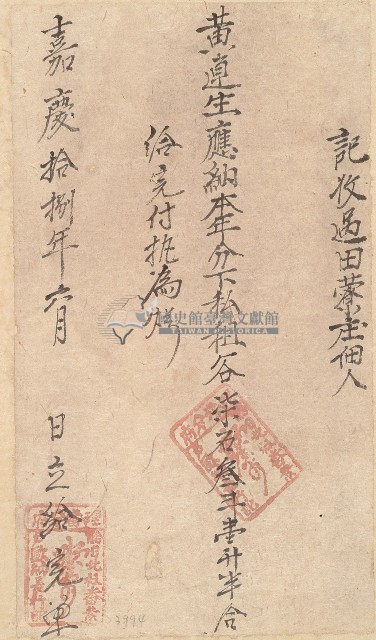 記收過田藔庄佃人
黃連生應納本年分下私租谷柒石叁斗壹升半合
給完付执為炤
嘉慶拾捌年六月 日立給完单
歷史館臺灣文獻館
TAIWAN HISTORICA
3994